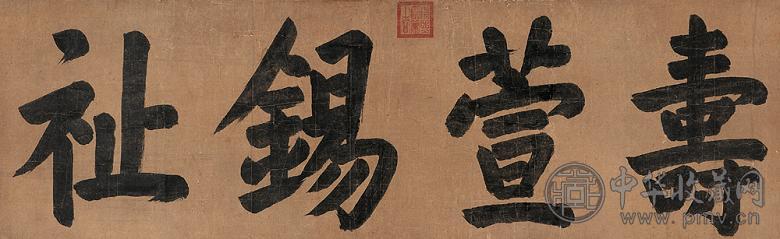 壽萱錫祉
中华收藏网
www.pmv.cn